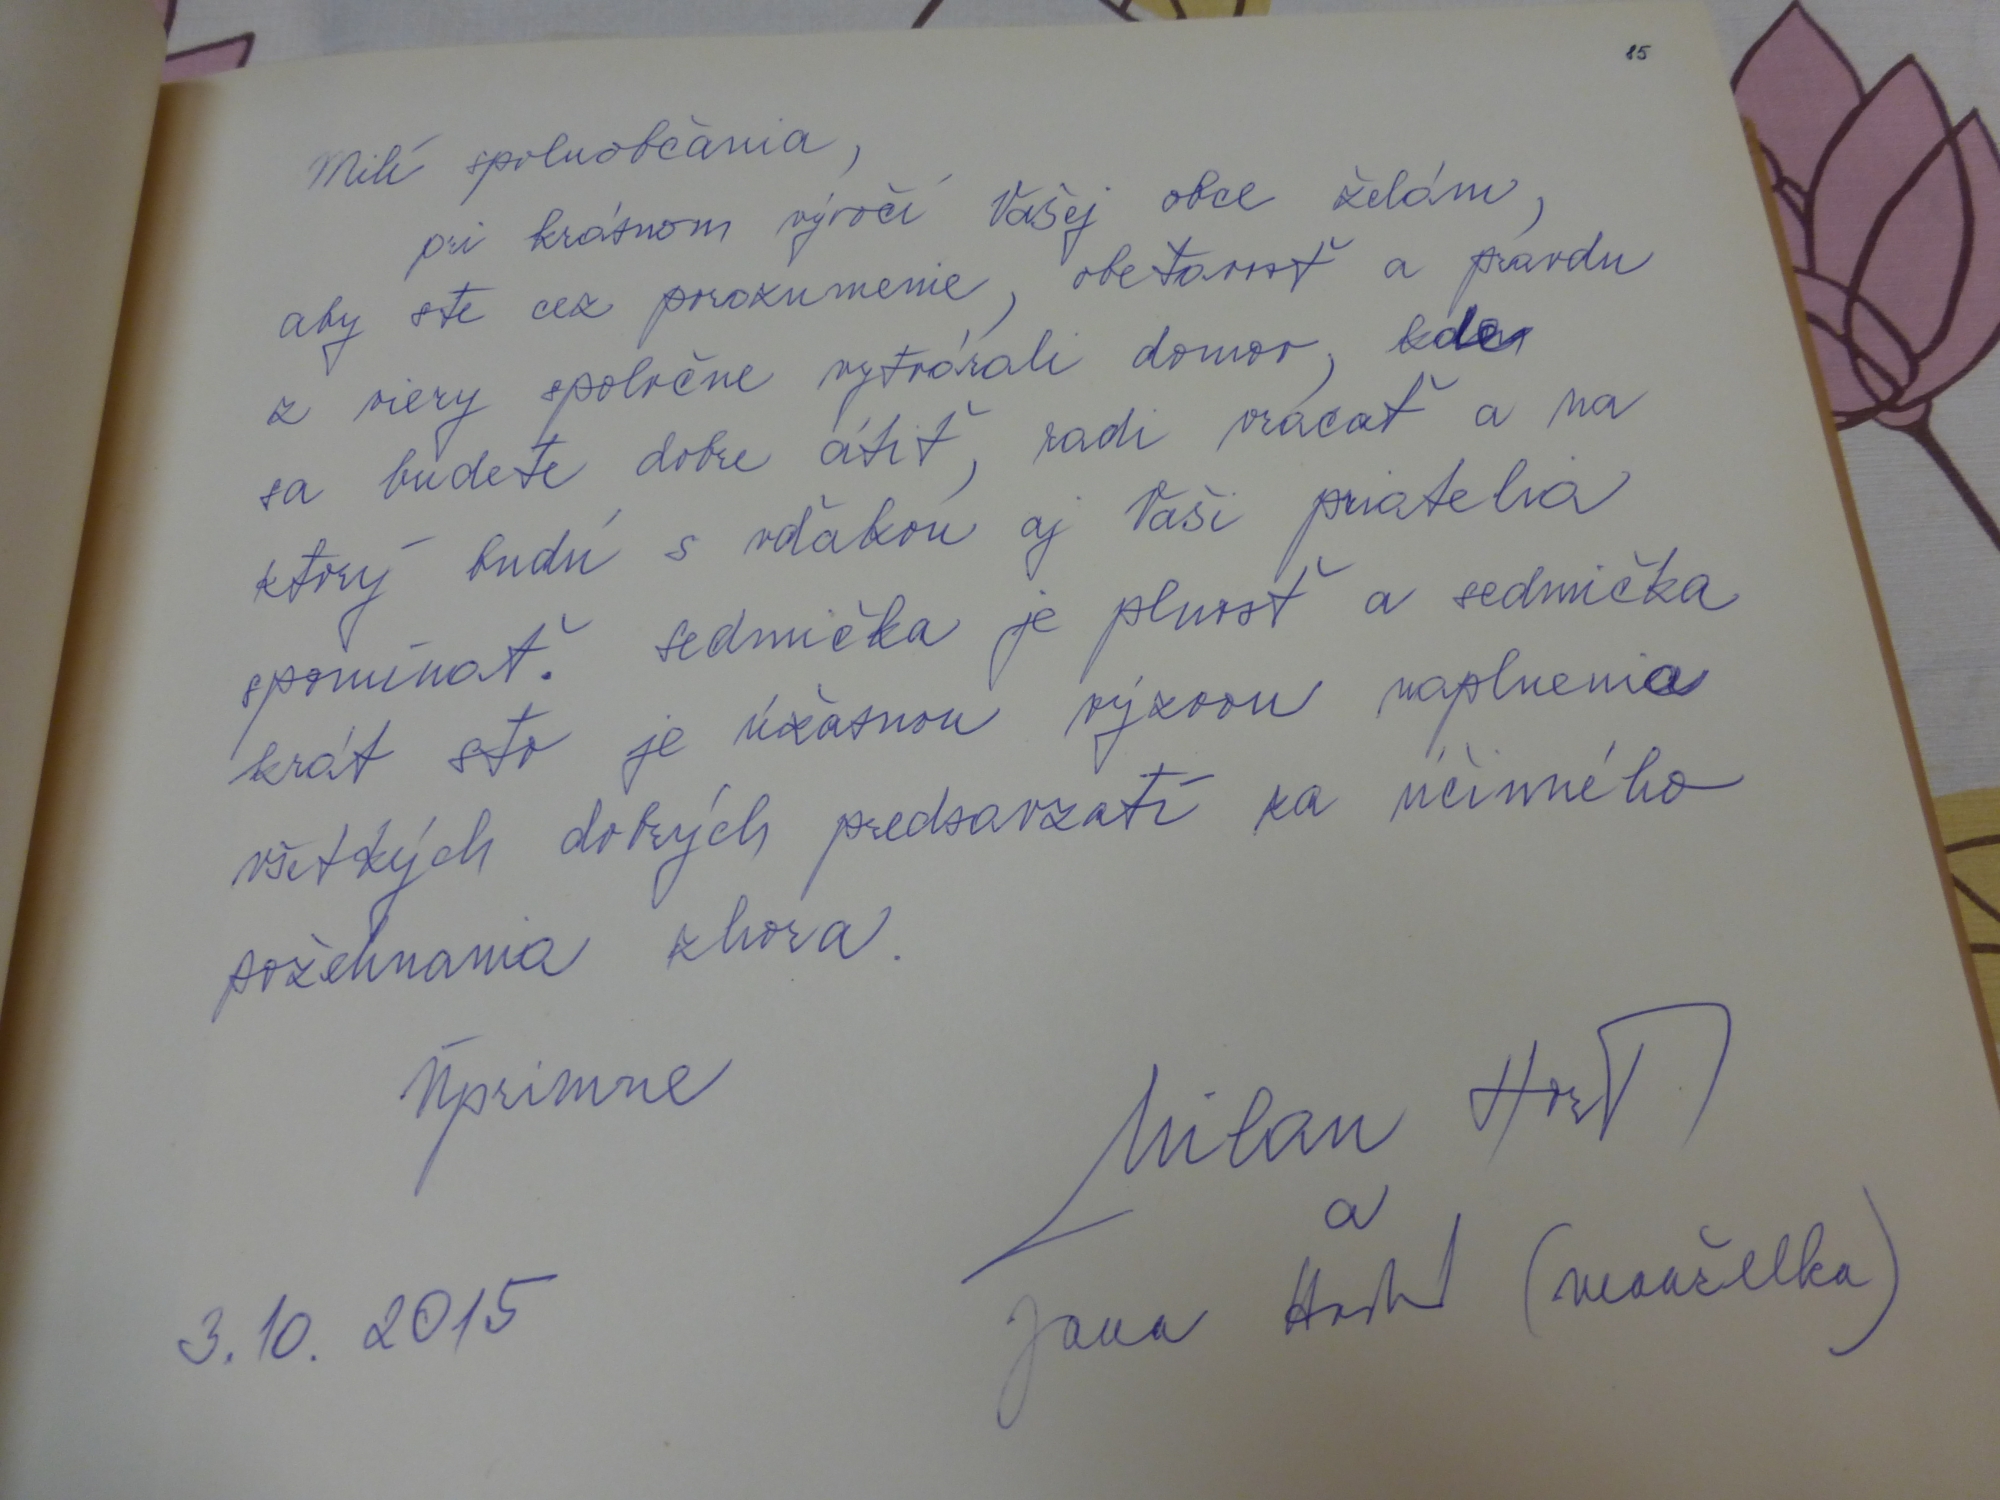 85
Milí spoluobčania,
pri krásnom výročí Vašej obce želám,
aby ste cez porozumenie, obetavosť a pravdu
z viery spoločne vytvárali domov, kde
sa budete dobre cítiť, radi vracať a na
ktorý budú s vďakou aj Vaši priatelia
spomínať. Sedmička je plnosť a sedmička
krát sto je úžasnou výzvou naplnenia
všetkých dobrých predsavzatí za účinného
požehnania zhora.
Úprimne
Milan Hort
a
Jana (manželka)
3.10. 2015